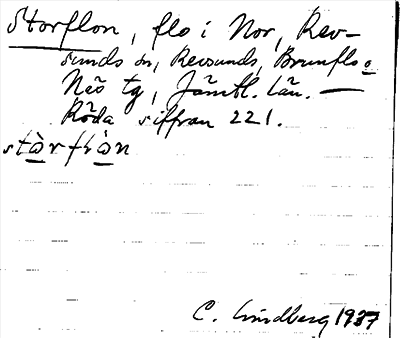 Storflon, flo i Nor, Rev-
sunds sn, Revsunds, Brunflo o
Näs tg, Jämtl. län. —
Röda siffran 221.
stòrflòn
C. Lindberg 1937